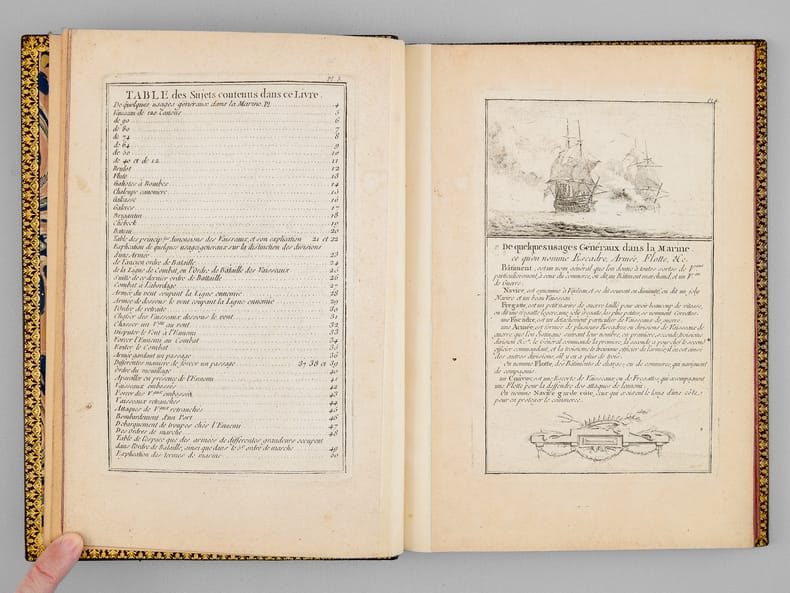 Pl. 3
TABLE des Sujets contenus dans ce Livre.
De quelques usages généraux dans la Marine. Pl. 4
Vaisseau de 120 Canons 5
de 90 6
de 80 7
de 74 8
de 64 9
de 50 10
de 40 et de 12 11
Brulot 12
Flute 13
Galiotes à Bombes 14
Chaloupe canoniere 15
Galeasse 16
Galeres 17
Brigantin 18
Chebeck 19
Bateau 20
Table des principles dimensions des Vaisseaux, et son explication 21 et 22
Explication de quelques usages généraux sur la distinction des divisions
d'une Armée 23
de l'ancien ordre de Bataille 24
de la Ligne de Combat, ou l'Ordre de Bataille des Vaisseaux 25
Suitte de ce dernier ordre de Battaille 26
Combat à l'abordage 27
Armée du vent coupant la Ligne ennemie 28
Armée de dessous le vent coupant la ligne ennemie 29
l'Ordre de retraite 30
Chasser des Vaisseaux dessous le vent 31
Chasser un Veau au vent 32
Disputer le Vent à l'Ennemi 33
Forcer l'Ennemi au Combat 34
Eviter le Combat 35
Armée gardant un passage 36
Differentes maniere de forcer un passage 37 38 et 39
Ordre du mouillage 40
Apareiller en presence de l'Ennemi 41
Vaisseaux embossés 42
Forcer des Veaux embossés 43
Vaisseaux retranchés 44
Attaques de Veaux retranchés 45
Bombardement d'un Port 46
Debarquement de troupes chés l'Ennemi 47
Des ordres de marche 48
Table de l'espace que des armées de differentes grandeurs occupent
dans l'ordre de Bataille, ainsi que dans le 5e ordre de marche 49
Explication des termes de marine 50
Pl. 4
De quelques usages Généraux dans la Marine.
ce qu'on nomme Escadre, Armée, Flotte, &c.
Bâtiment, est un nom général que l'on donne à toutes sortes de Veaux
particulierement à ceux du commerce, on dit un Bâtiment marchand, et un Veau
de Guerre.
Navire, est synonime à Vaisseau, et se dit souvent en diminutif, on dit un joli
Navire et un beau Vaisseau.
Fregatte, est un petit navire de guerre taillé pour avoir beaucoup de vitesse,
on dit une frégatte legere, une jolie frégatte, les plus petites, se nomment Corvettes.
une Escadre, est un détachement particulier de Vaisseaux de guerre.
une Armée, est formée de plusieurs Escadres ou divisions de Vaisseaux de
guerre que l'on distingue suivant leur nombre, en premiere, seconde, troisieme
division &ca. le Général commande la premiere, la seconde a pour chef le second
officier commandant, et la troisieme le troisieme officier de l'armée; il en est ainsi
des autres divisions, s'il y a plus de trois.
On nomme Flotte, des Bâtiments de charge, ou de commerce, qui naviguent
de compagnie.
un Convoi, est une Escorte de Vaisseaux, ou de Fregattes, qui accompagnent
une Flotte pour la deffendre des attaques de l'ennemi.
On nomme Navire garde côte, ceux qui croisent le long d'une côte,
pour en protéger le commerce.